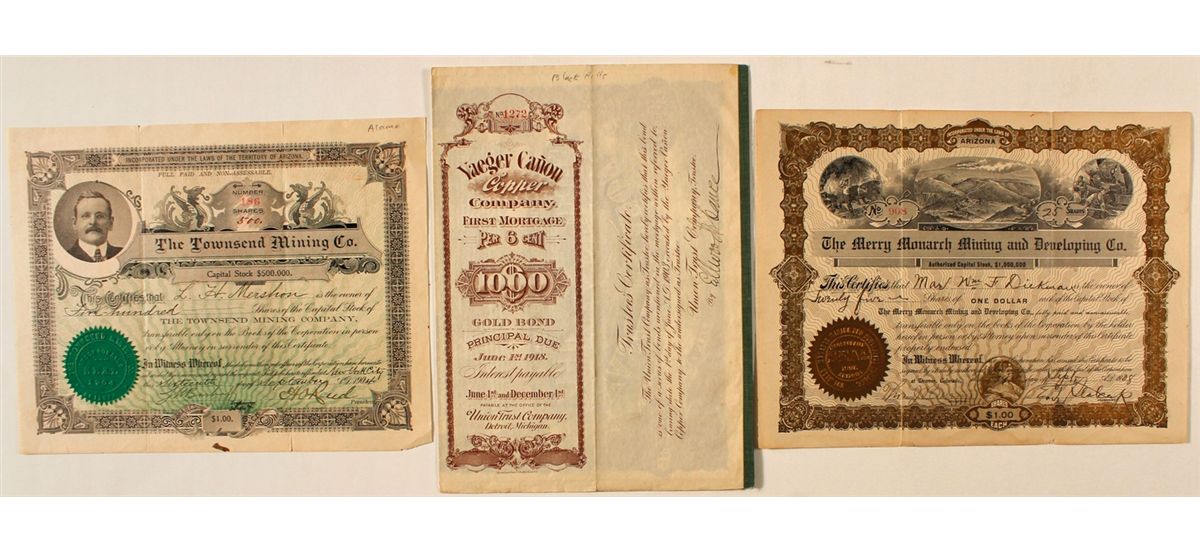 Alamo
INCORPORATED UNDER THE LAWS OF THE TERRITORY OF ARIZONA.
FULL PAID AND NON-ASSESSABLE.
NUMBER
186
SHARES
500
The Townsend Mining Co.
Capital Stock $500,000.
This Certifies that L. H. Mershon is the owner of
Five hundred Shares of the Capital Stock of
THE TOWNSEND MINING COMPANY,
transferable only on the Books of the Corporation in person
or by Attorney on surrender of this Certificate.
In Witness Whereof
New York City
Sixteenth day of September A.D. 1904
President
$1.00.
Black Hills
No 1272
Yaeger Cañon
Copper
Company.
FIRST MORTGAGE
PER 6 CENT
$1000
GOLD BOND
PRINCIPAL DUE
June 1st 1918.
Interest payable
June 1st and December 1st
PAYABLE AT THE OFFICE OF THE
Union Trust Company,
Detroit, Michigan.
Trustee's Certificate.
The Union Trust Company, as Trustee, hereby certifies that this bond
is one of the series described in the mortgage within referred to,
bearing date the 1st day of June, A.D. 1903, executed by the Yaeger Cañon
Copper Company to the undersigned as Trustee.
Union Trust Company, Trustee.
By
INCORPORATED UNDER THE LAWS OF
ARIZONA
No 908
25 SHARES
The Merry Monarch Mining and Developing Co.
Authorized Capital Stock, $1,000,000
This Certifies that Mas Wm F Dickman is the owner of
Twenty five Shares of ONE DOLLAR each of the Capital Stock of
The Merry Monarch Mining and Developing Co., fully paid and nonassessable
transferable only on the books of the Corporation by the holder
hereof in person or by Attorney upon surrender of this Certificate
properly endorsed.
In Witness Whereof,
SHARES
$1.00
EACH